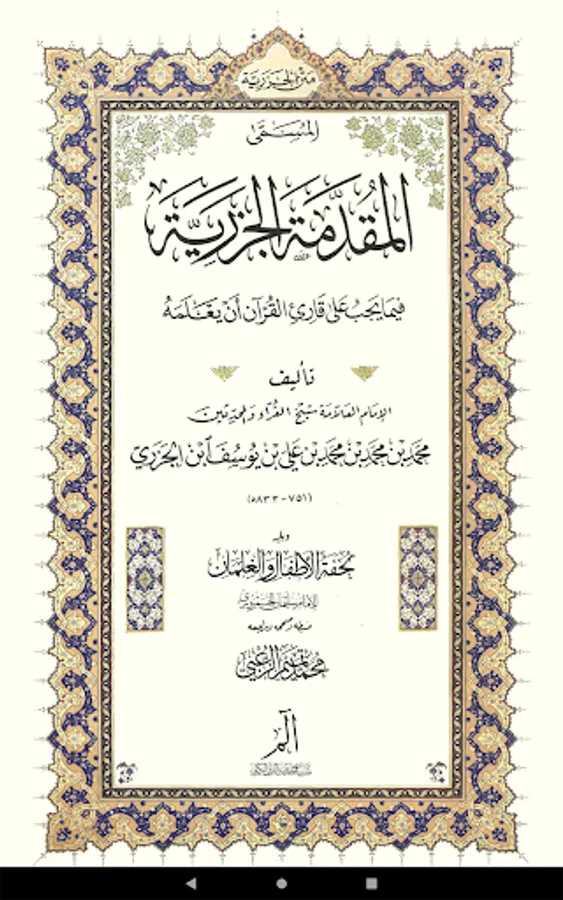 متن الجزرية
المسمى
المقدمة الجزرية
فيما يجب على قارئ القرآن أن يعلمه
تأليف
الإمام العلامة شيخ القراء والمحدثين
محمد بن محمد بن محمد بن علي بن يوسف ابن الجزري
(٧٥١ - ٨٣٣هـ)
ويليه
تحفة الأطفال والغلمان
للإمام سليمان الجمزوري
ضبطه وصححه وراجعه
محمد تميم الزعبي
الم